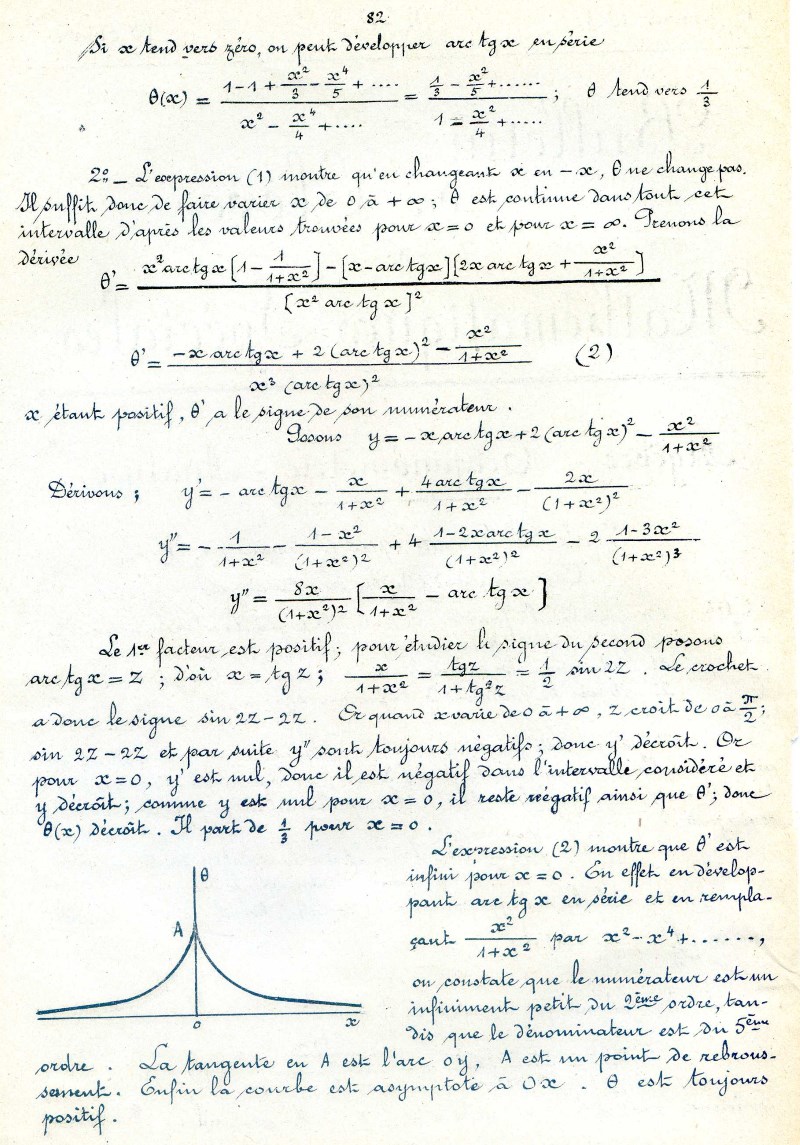 82
Si x tend vers zéro, on peut développer arc tg x en série
θ(x) = (1-1 + x²/3 - x⁴/5 + ....)/(x² - x⁴/4 + ....) = (1/3 - x²/5 + ......)/(1 - x²/4 + .....) ; θ tend vers 1/3
2º_ L'expression (1) montre qu'en changeant x en -x, θ ne change pas.
Il suffit donc de faire varier x de 0 à +∞ ; θ est continue dans tout cet
intervalle d'après les valeurs trouvées pour x=0 et pour x = ∞. Prenons la
dérivée
θ' = (x² arc tg x [1 - 1/(1+x²)] - [x - arc tg x][2x arc tg x + x²/(1+x²)])/[x² arc tg x]²
θ' = (-x arc tg x + 2 (arc tg x)² - x²/(1+x²))/(x³ (arc tg x)²) (2)
x étant positif, θ' a le signe de son numérateur.
Posons y = -x arc tg x + 2 (arc tg x)² - x²/(1+x²)
Dérivons ; y' = - arc tg x - x/(1+x²) + 4 arc tg x/(1+x²) - 2x/(1+x²)²
y" = - 1/(1+x²) - (1-x²)/(1+x²)² + 4 (1-2x arc tg x)/(1+x²)² - 2 (1-3x²)/(1+x²)³
y" = 8x/(1+x²)² [x/(1+x²) - arc tg x]
Le 1er facteur est positif ; pour étudier le signe du second posons
arc tg x = z ; d'où x = tg z ; x/(1+x²) = tg z/(1+tg²z) = 1/2 sin 2z . Le crochet
a donc le signe sin 2z - 2z . Or quand x varie de 0 à +∞, z croit de 0 à π/2 ;
sin 2z - 2z et par suite y" sont toujours négatifs ; donc y' décroît. Or
pour x=0, y' est nul, donc il est négatif dans l'intervalle considéré et
y décroît ; comme y est nul pour x = 0, il reste négatif ainsi que θ' ; donc
θ(x) décroît . Il part de 1/3 pour x = 0 .
L'expression (2) montre que θ' est
infini pour x = 0 . En effet en dévelop-
pant arc tg x en série et en rempla-
çant x²/(1+x²) par x² - x⁴ + ......,
on constate que le numérateur est un
infiniment petit du 2ème ordre, tan-
dis que le dénominateur est du 5ème
θ
A
0
x
ordre . La tangente en A est l'arc oy, A est un point de rebrous-
sement. Enfin la courbe est asymptote à Ox . θ est toujours
positif .